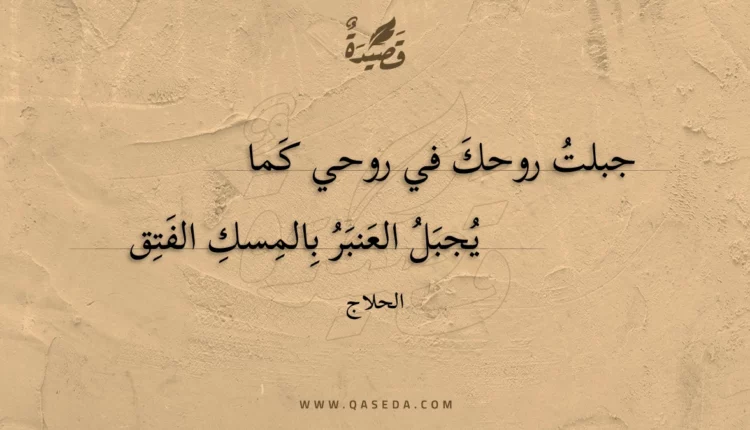 قَصيدَةٌ
جبلتُ روحكَ في روحي كَما
يُجبَلُ العَنبَرُ بِالمِسكِ الفَتِق
الحلاج
WWW.QASEDA.COM